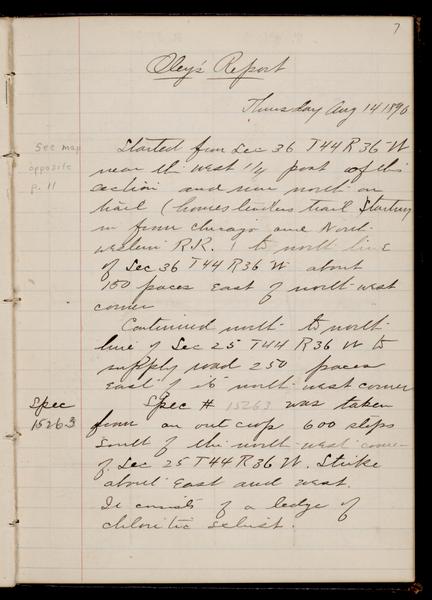 7
Oley's Report
Thursday Aug 14 1890
See map
opposite
p. 11
Started from Sec 36 T44 R36 W
near the west 1/4 post of this
section and run north on
trail (homesteaders trail Starting
in from Chicago and North
western R.R.) to north line
of Sec 36 T44 R36 W about
150 paces East of north-west
corner
Continued north to north
line of Sec 25 T44 R36 W to
supply road 250 paces
East of its north west corner
Spec
15263
Spec # 15263 was taken
from an out crop 600 steps
South of the north-west corner
of Sec 25 T44 R36 W. Strike
about East and west.
It consists of a ledge of
chloritic schist.